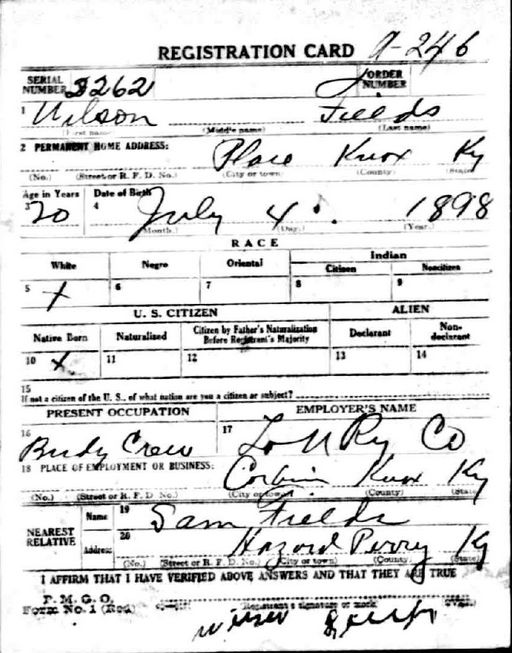 REGISTRATION CARD 9-246
SERIAL NUMBER 3262 ORDER NUMBER
1 Wilson Fields
(First name) (Middle name) (Last name)
2 PERMANENT HOME ADDRESS: Place Knox Ky
(No.) (Street or R. F. D. No.) (City or town) (County) (State)
Age in Years Date of Birth
3 20 4 July 4. 1898
(Month.) (Day.) (Year.)
RACE
White Negro Oriental Indian
Citizen Noncitizen
5 X 6 7 8 9
U. S. CITIZEN ALIEN
Native Born Naturalized Citizen by Father's Naturalization Before Registrant's Majority Declarant Non-declarant
10 X 11 12 13 14
15
If not a citizen of the U. S., of what nation are you a citizen or subject?
PRESENT OCCUPATION EMPLOYER'S NAME
16 Crew 17 L o N Ry Co
18 PLACE OF EMPLOYMENT OR BUSINESS:
Corbin Knox Ky
(No.) (Street or R. F. D. No.) (City or town) (County) (State)
NEAREST RELATIVE Name 19 Sam Fields
Address 20 Hazard Perry Ky
(No.) (Street or R. F. D. No.) (City or town) (County) (State)
I AFFIRM THAT I HAVE VERIFIED ABOVE ANSWERS AND THAT THEY ARE TRUE
P. M. G. O.
Form No. 1 (Red) (Registrant's signature or mark)